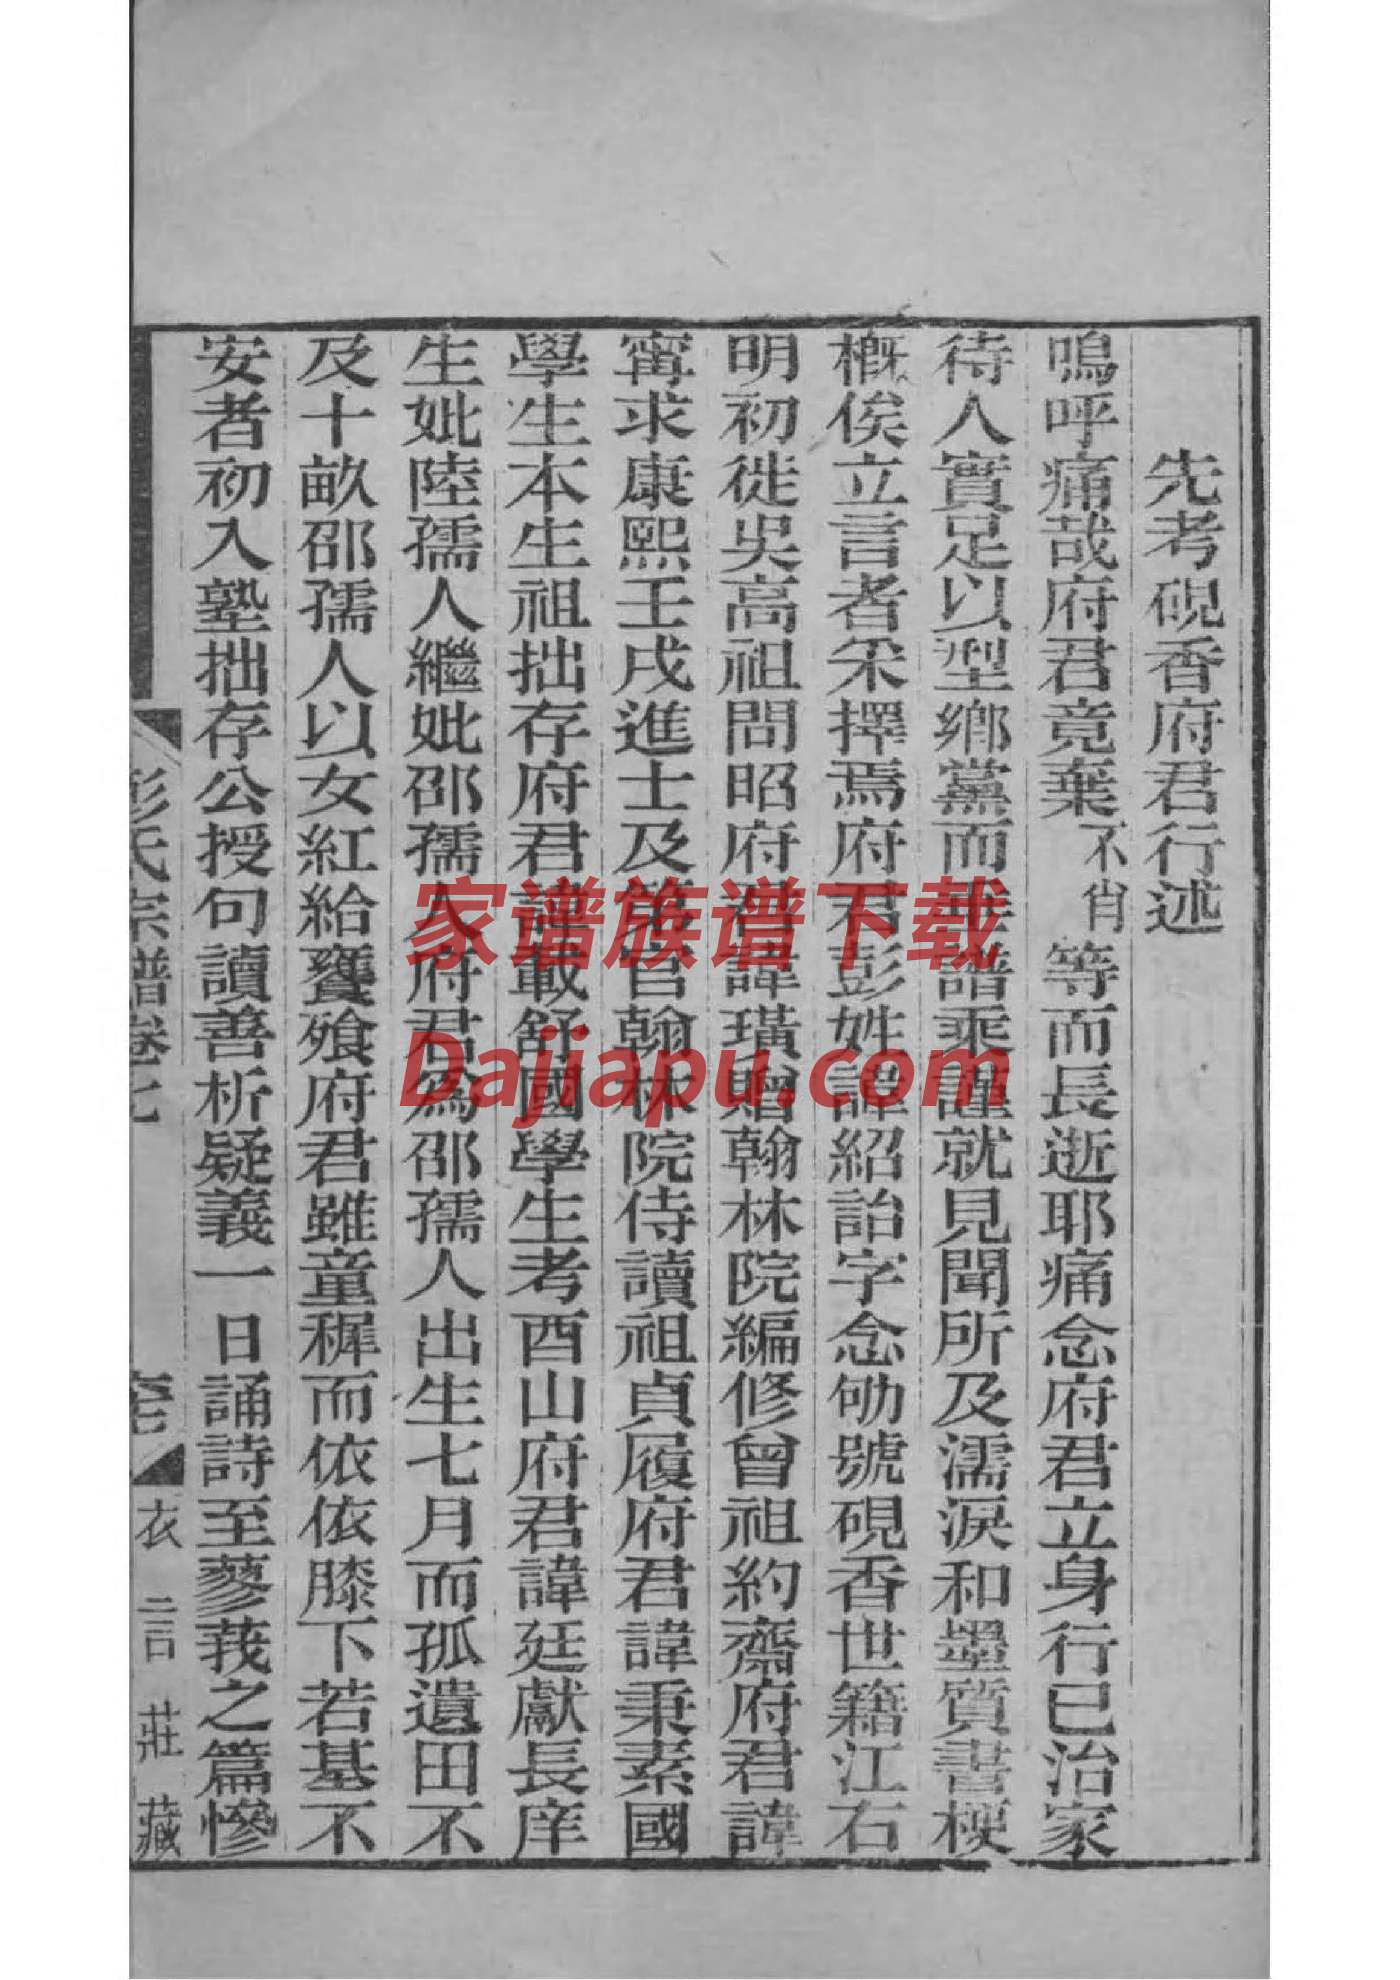 先考硯香府君行述
嗚呼痛哉府君竟棄不肖等而長逝耶痛念府君立身行已治家
待人實足以型鄉黨而垂譜乘謹就見聞所及濡淚和墨質書梗
概俟立言者采擇焉府君彭姓諱紹詒字念劬號硯香世籍江右
明初徙吳高祖問昭府君諱璜贈翰林院編修曾祖約齋府君諱
甯求康熙壬戌進士及第官翰林院侍讀祖貞履府君諱秉素國
學生本生祖拙存府君諱載舒國學生考酉山府君諱廷獻長庠
生妣陸孺人繼妣邵孺人府君為邵孺人出生七月而孤遺田不
及十畝邵孺人以女紅給饔飧府君雖童穉而依依膝下若基不
安者初入塾拙存公授句讀善析疑義一日誦詩至蓼莪之篇慘
彭氏宗譜卷七
衣言莊藏
家谱族谱下载
Dajiapu.com